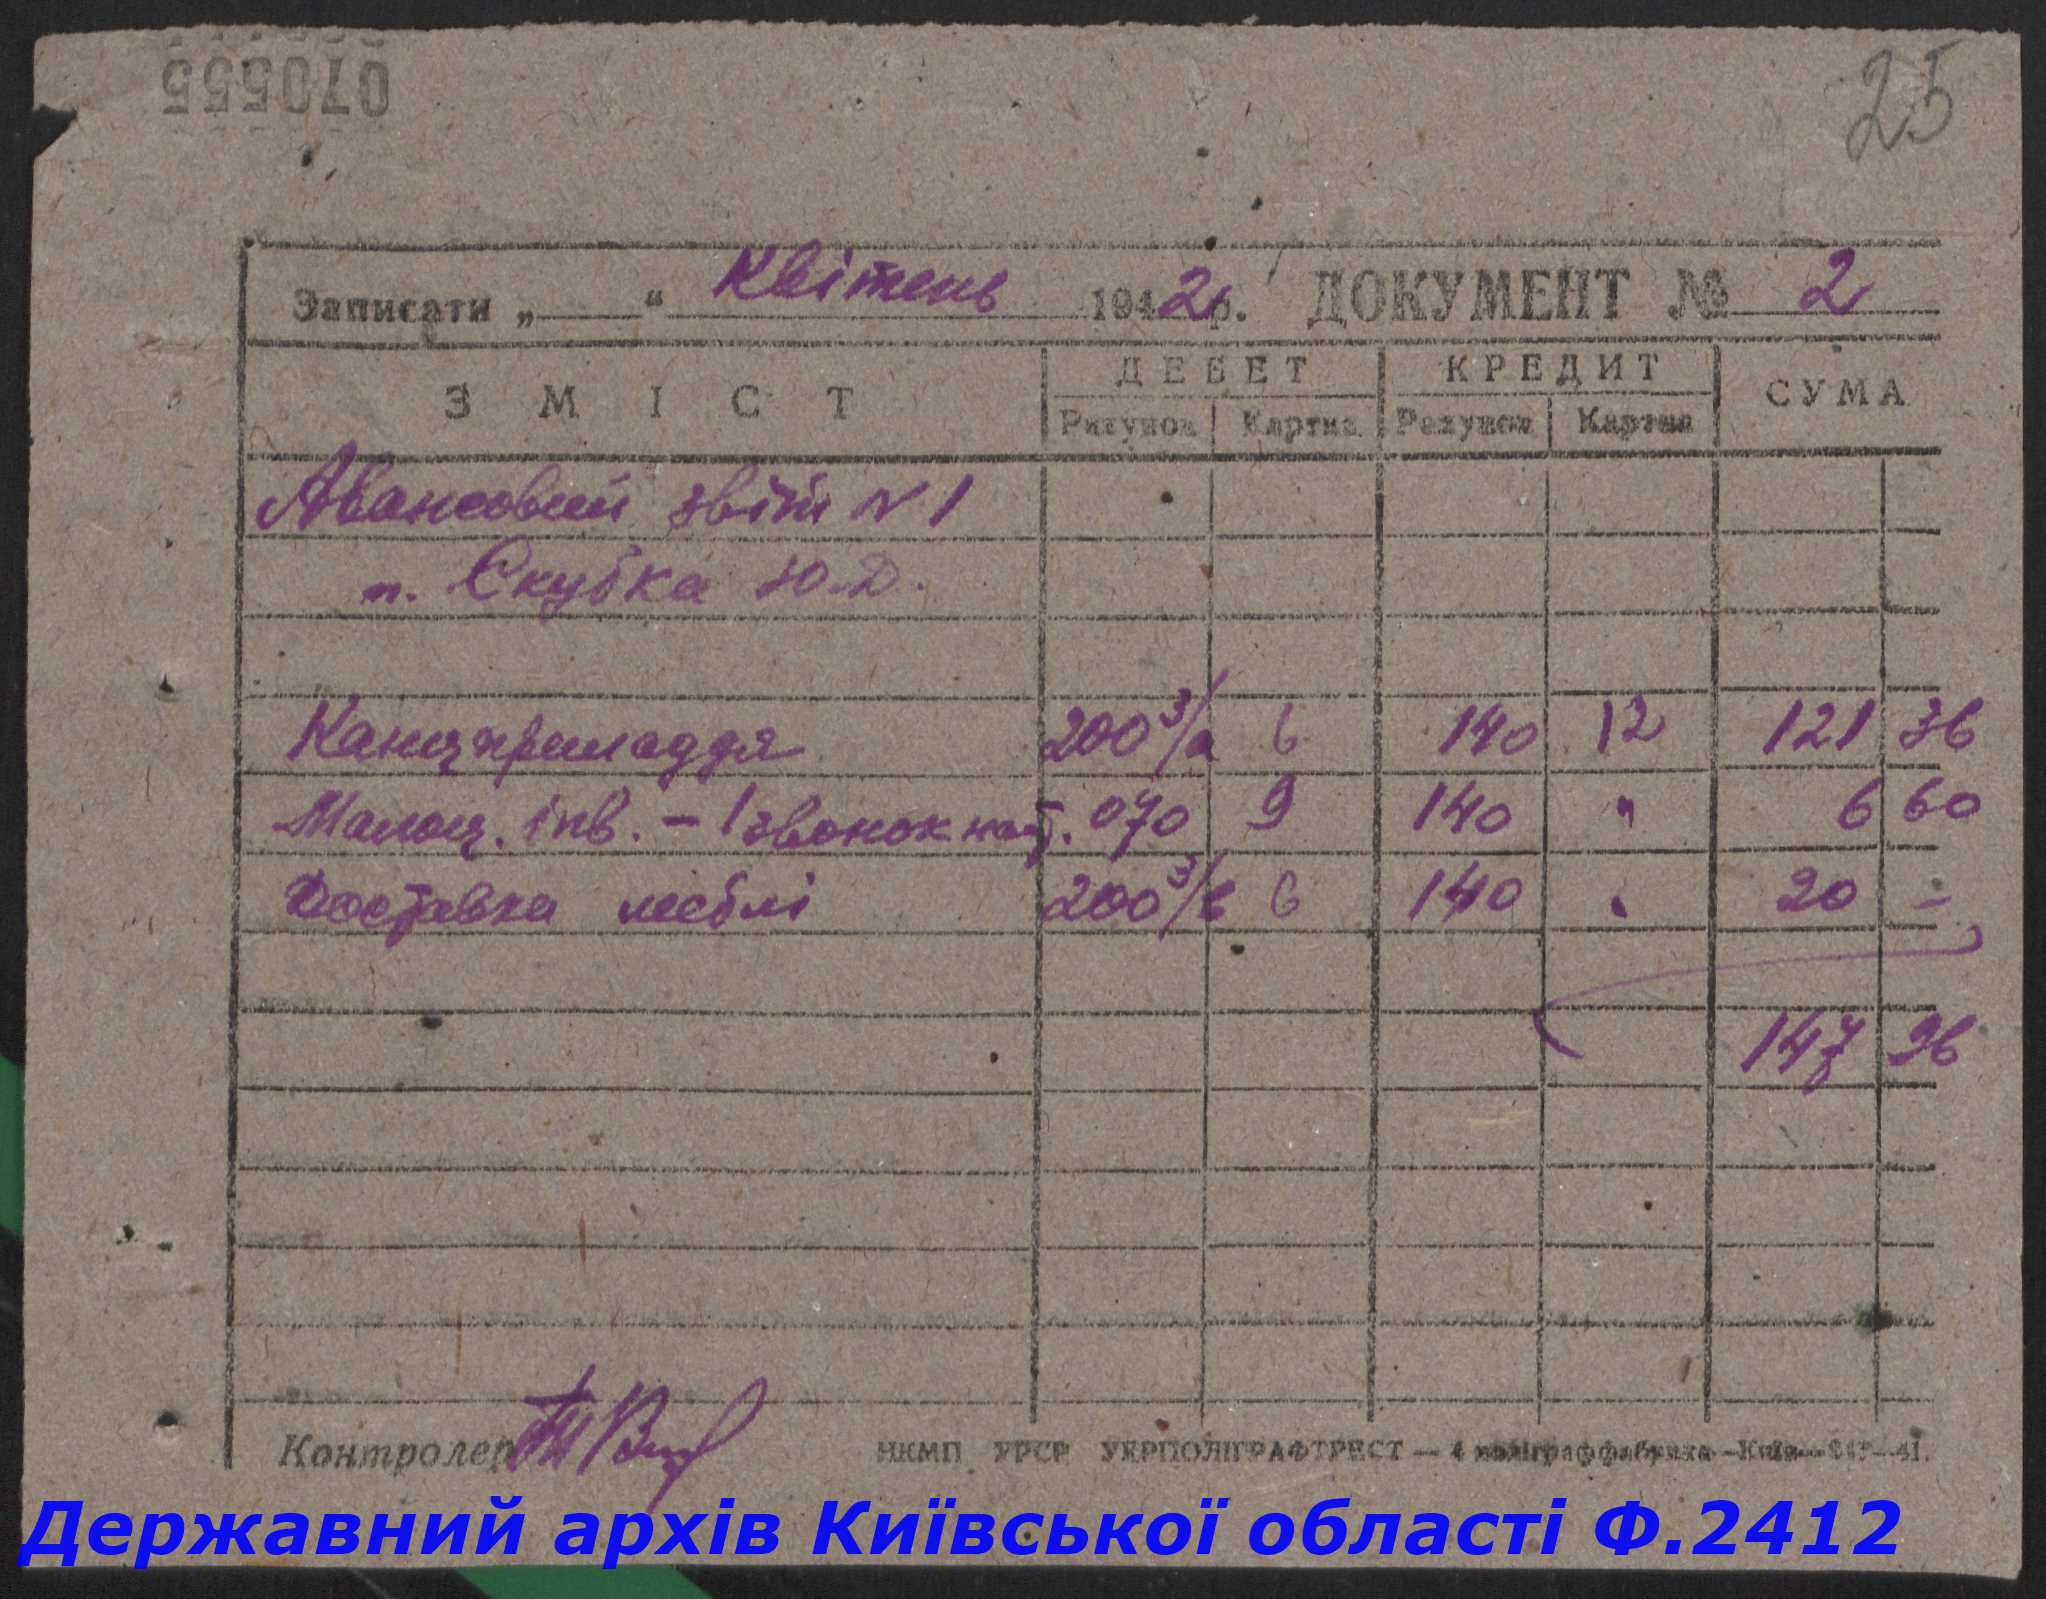 070555
25
Записати „ “ Квітень 1942 р. ДОКУМЕНТ № 2
ЗМІСТ ДЕБЕТ КРЕДИТ СУМА
Рахунок Картка Рахунок Картка
Авансовий звіт N 1
п. Скубка Ю.Д.
Канцприладдя 200 3/а 6 140 12 121 36
Малоц. інв. – 1 звонок наст. 070 9 140 " 6 60
Доставка меблі 200 3/в 6 140 " 20 –
147 96
Контролер
НКМП УРСР УКРПОЛІГРАФТРЕСТ — 4 поліграффабрика
Державний архів Київської області Ф.2412